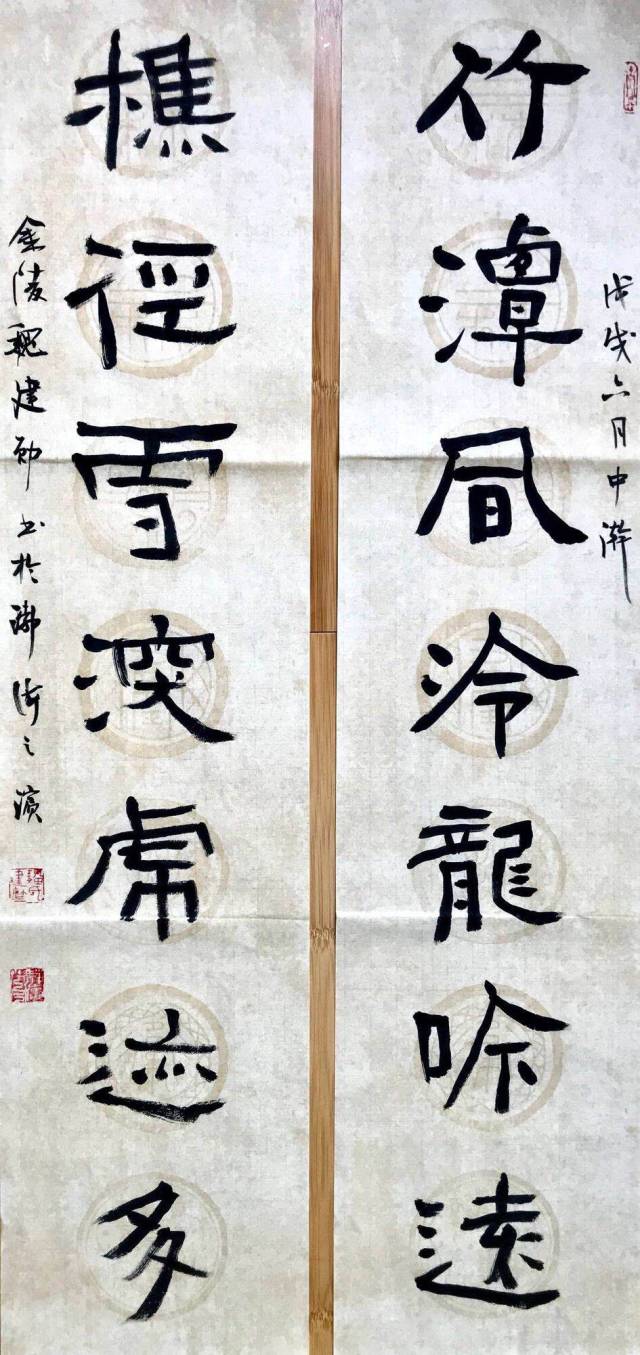 戊戌六月中澣
竹潭凬冷龍吟遠
樵徑雪深虎迹多
金陵魏建书於之濱